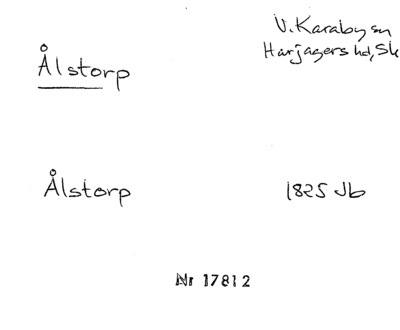 V. Karaby sn
Harjagers hd, Sk
Ålstorp
Ålstorp 1825 Jb
Nr 17812